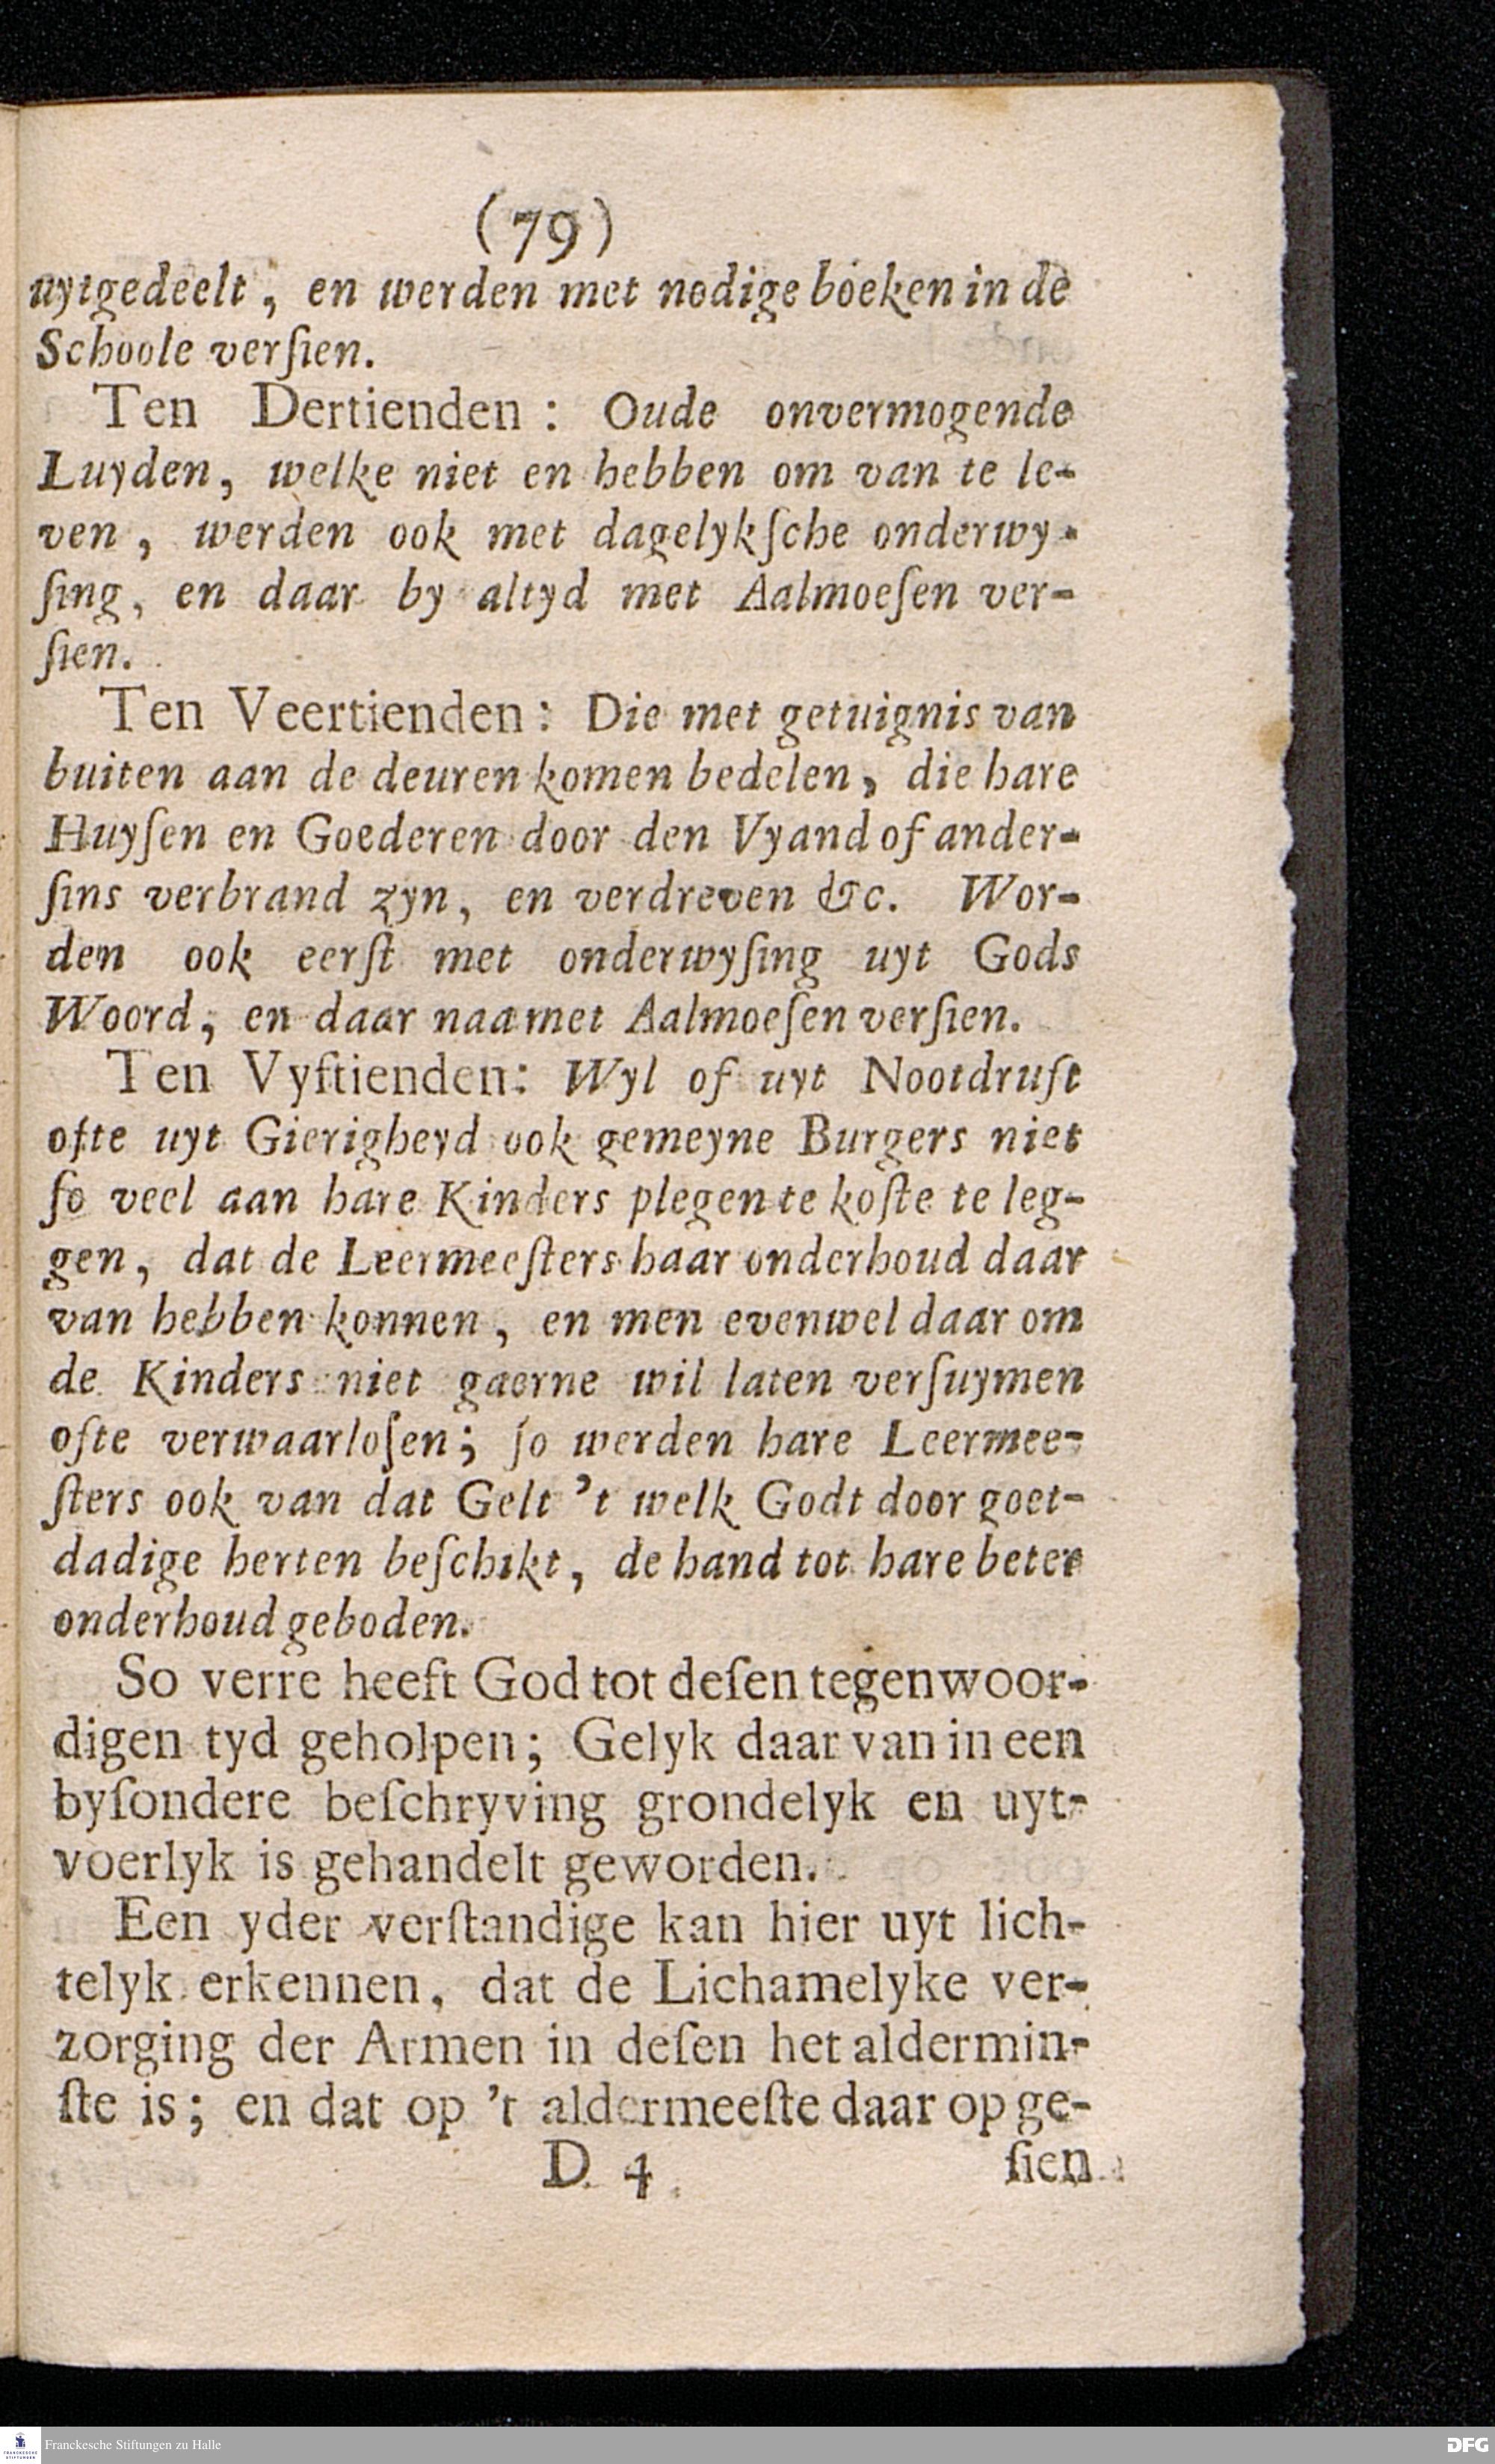 (79)
uytgedeelt, en werden met nodige boeken in de
Schoole verſien.
Ten Dertienden: Oude onvermogende
Luyden, welke niet en hebben om van te le-
ven, werden ook met dagelykſche onderwy-
ſing, en daar by altyd met Aalmoeſen ver-
ſien.
Ten Veertienden: Die met getuignis van
buiten aan de deuren komen bedelen, die hare
Huyſen en Goederen door den Vyand of ander-
ſins verbrand zyn, en verdreven &c. Wor-
den ook eerſt met onderwyſing uyt Gods
Woord, en daar naa met Aalmoeſen verſien.
Ten Vyftienden: Wyl of uyt Nootdruft
ofte uyt Gierigheyd ook gemeyne Burgers niet
ſo veel aan hare Kinders plegen te koſte te leg-
gen, dat de Leermeeſters haar onderhoud daar
van hebben konnen, en men evenwel daar om
de Kinders niet gaerne wil laten verſuymen
ofte verwaarloſen; ſo werden hare Leermee-
ſters ook van dat Gelt 't welk Godt door goet-
dadige herten beſchikt, de hand tot hare beter
onderhoud geboden.
So verre heeft God tot deſen tegenwoor-
digen tyd geholpen; Gelyk daar van in een
byſondere beſchryving grondelyk en uyt-
voerlyk is gehandelt geworden.
Een yder verſtandige kan hier uyt lich-
telyk erkennen, dat de Lichamelyke ver-
zorging der Armen in deſen het aldermin-
ſte is; en dat op 't aldermeeſte daar op ge-
D 4
ſien
FRANCKESCHE STIFTUNGEN
Franckesche Stiftungen zu Halle
DFG